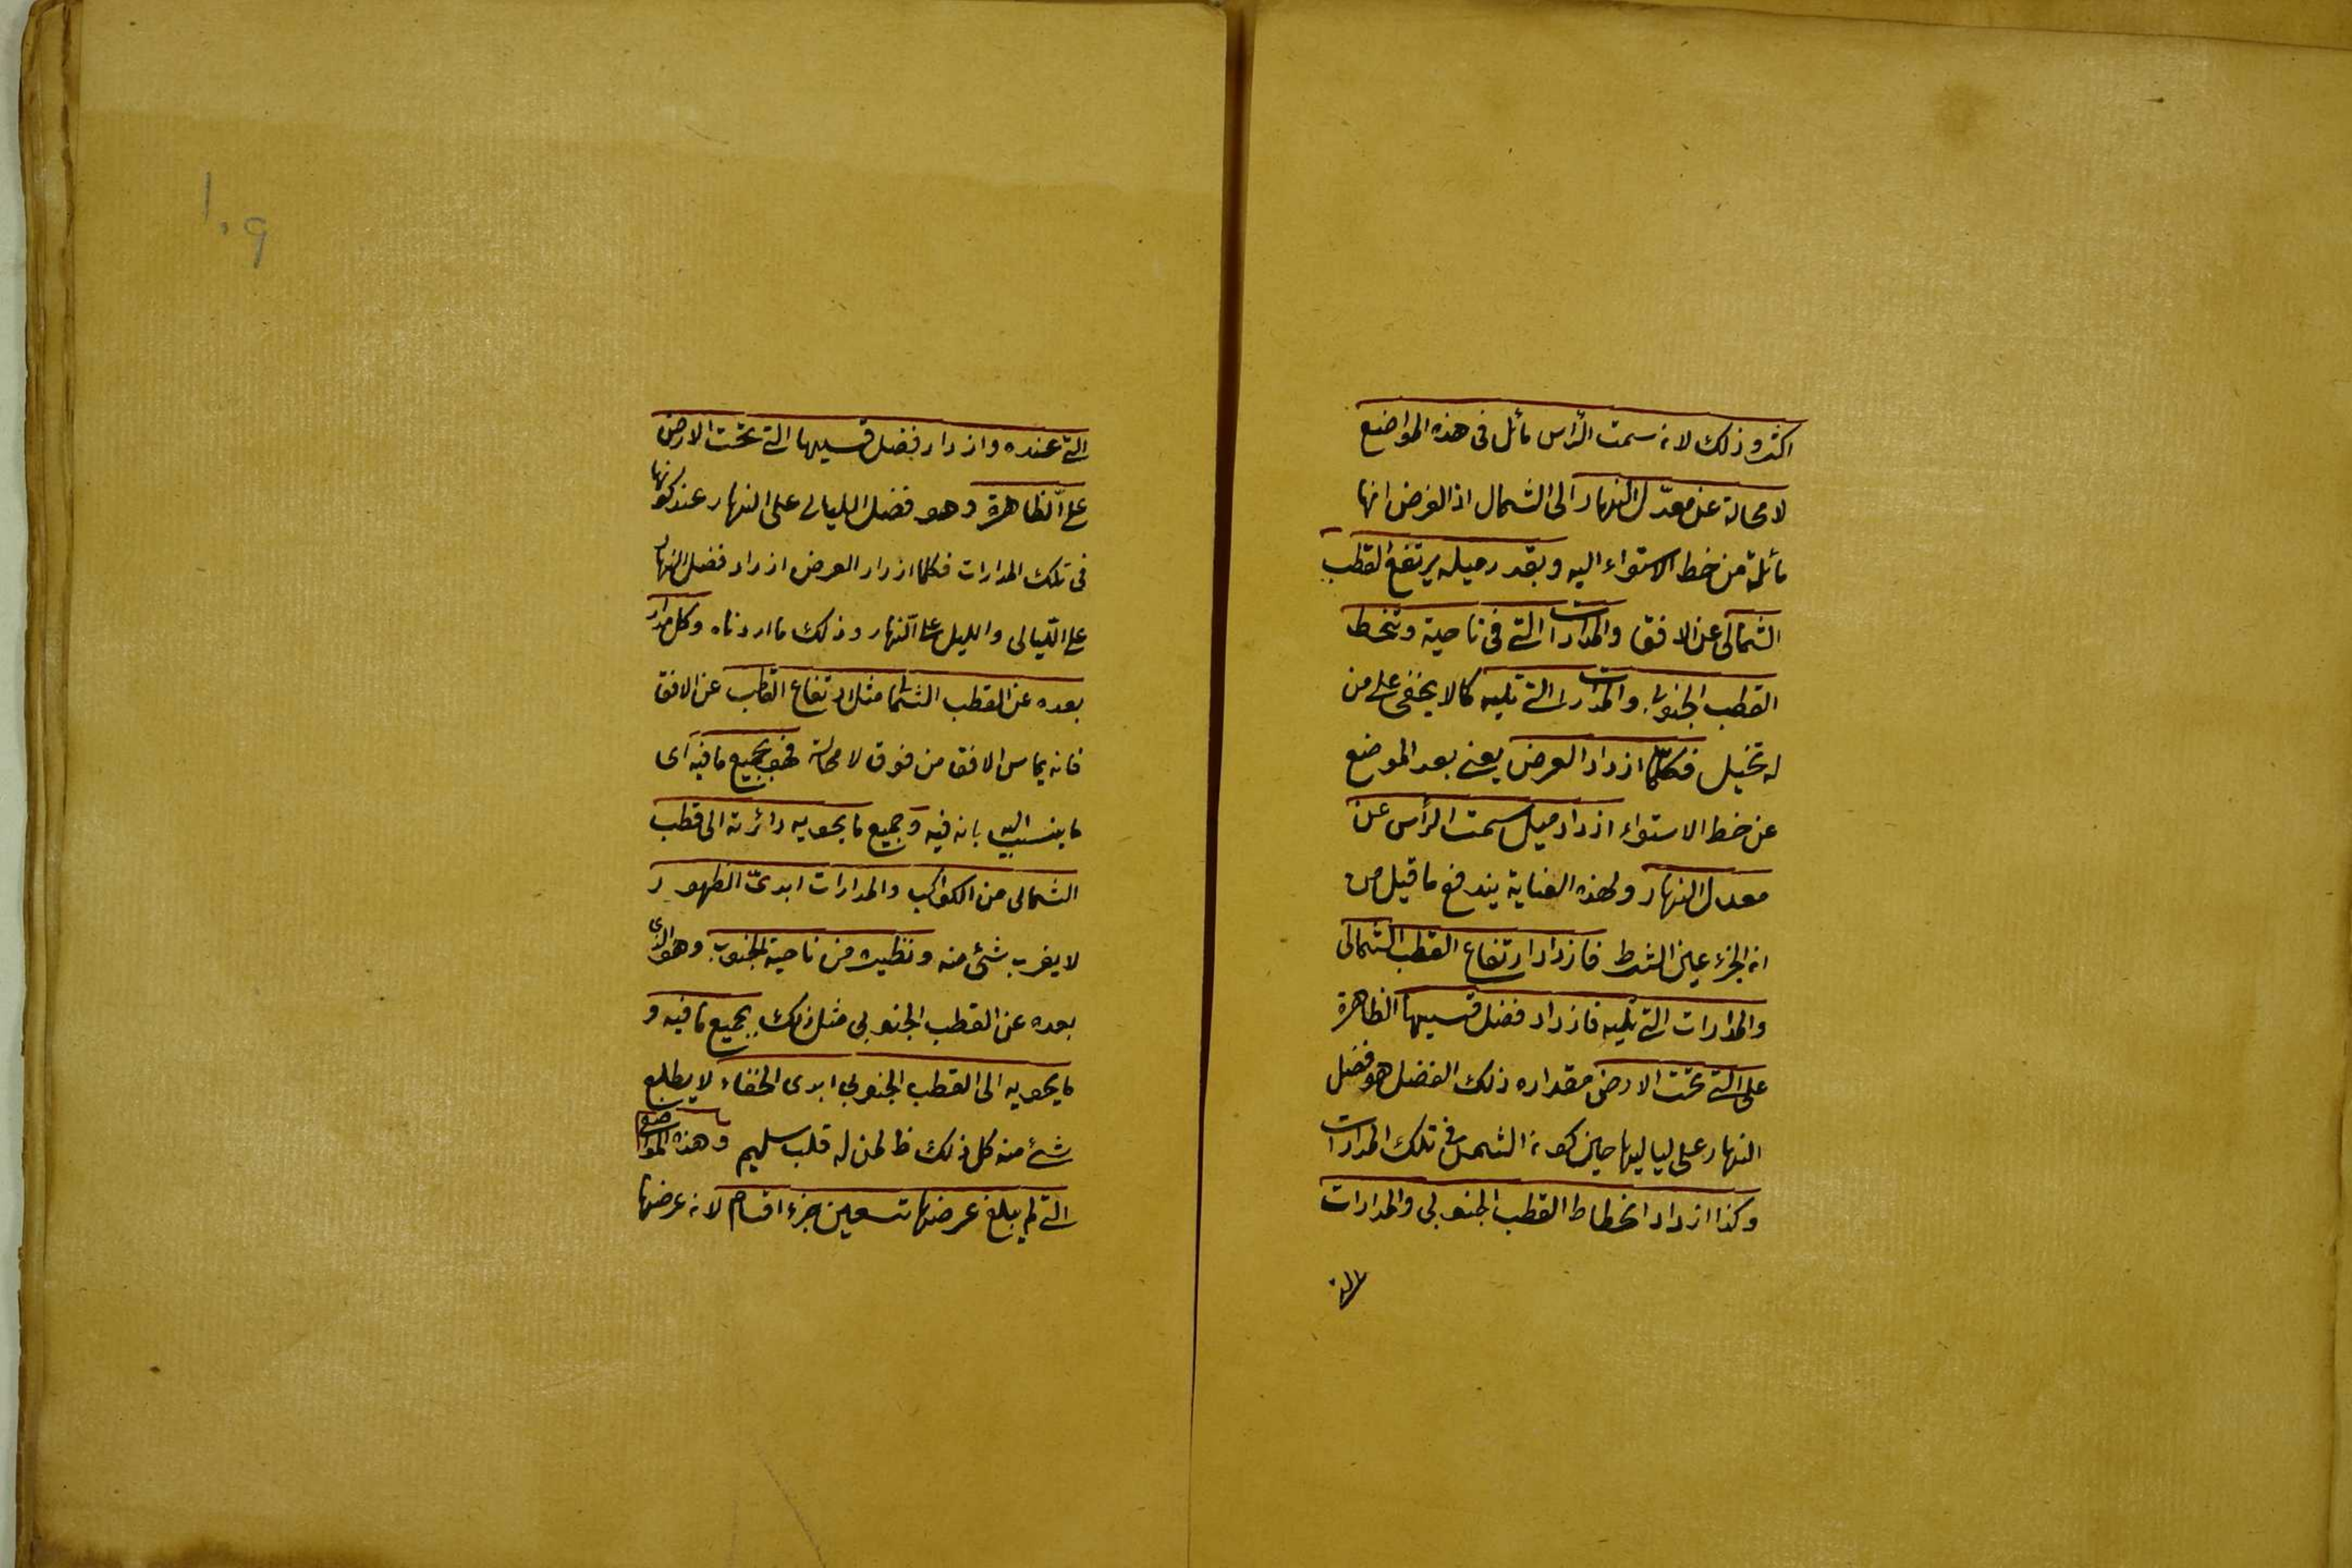 اكثر وذلك لان سمت الرأس مائل فى هذه المواضع
لا محالة عن معدّل النهار الى الشمال اذ الفرض انها
مائلة من خط الاستواء اليه وبقدر ميله يرتفع القطب
الشمالى عن الافق والمدارات التى فى ناحية وتنحط
القطب الجنوبى والمدارات التى تليه كما لا يخفى على من
له تخيل فكلما ازداد العرض يعنى بعد الموضع
عن خط الاستواء ازداد ميل سمت الرأس عن
معدل النهار ولهذه العناية يندفع ما قيل من
ان الجزء عين الشرط فازداد ارتفاع القطب الشمالى
والمدارات التى تليه فازداد فضل قسيها الظاهرة
على التى تحت الارض مقداره ذلك الفضل هو فضل
النهار على لياليها حين كون الشمس فى تلك المدارات
وكذا ازداد انحطاط القطب الجنوبى والمدارات
التى
١٠٩
التى عنده وازداد فضل قسيها التى تحت الارض
على الظاهرة وهو فضل الليالى على النهار عند كونها
فى تلك المدارات فكلما ازداد العرض ازداد فضل النهار
على الليالى والليل على النهار وذلك ما اردناه وكل مدار
بعده عن القطب الشمالى مثل ارتفاع القطب عن الافق
فانه يماس الافق من فوق لا محالة فهو بجميع ما فيه اى
ما ينسب اليه بانه فيه وجميع ما يحويه دائرته الى قطب
الشمالى من الكواكب والمدارات ابدىّ الظهور
لا يغرب شئ منه ونظيره من ناحية الجنوب وهو الذى
بعده عن القطب الجنوبى مثل ذلك بجميع ما فيه و
ما يحويه الى القطب الجنوبى ابدى الخفاء لا يطلع
شئ منه كل ذلك ظ لمن له قلب سليم وهذه المواضع
التى لم يبلغ عرضها تسعين جزء اقسام لان عرضها